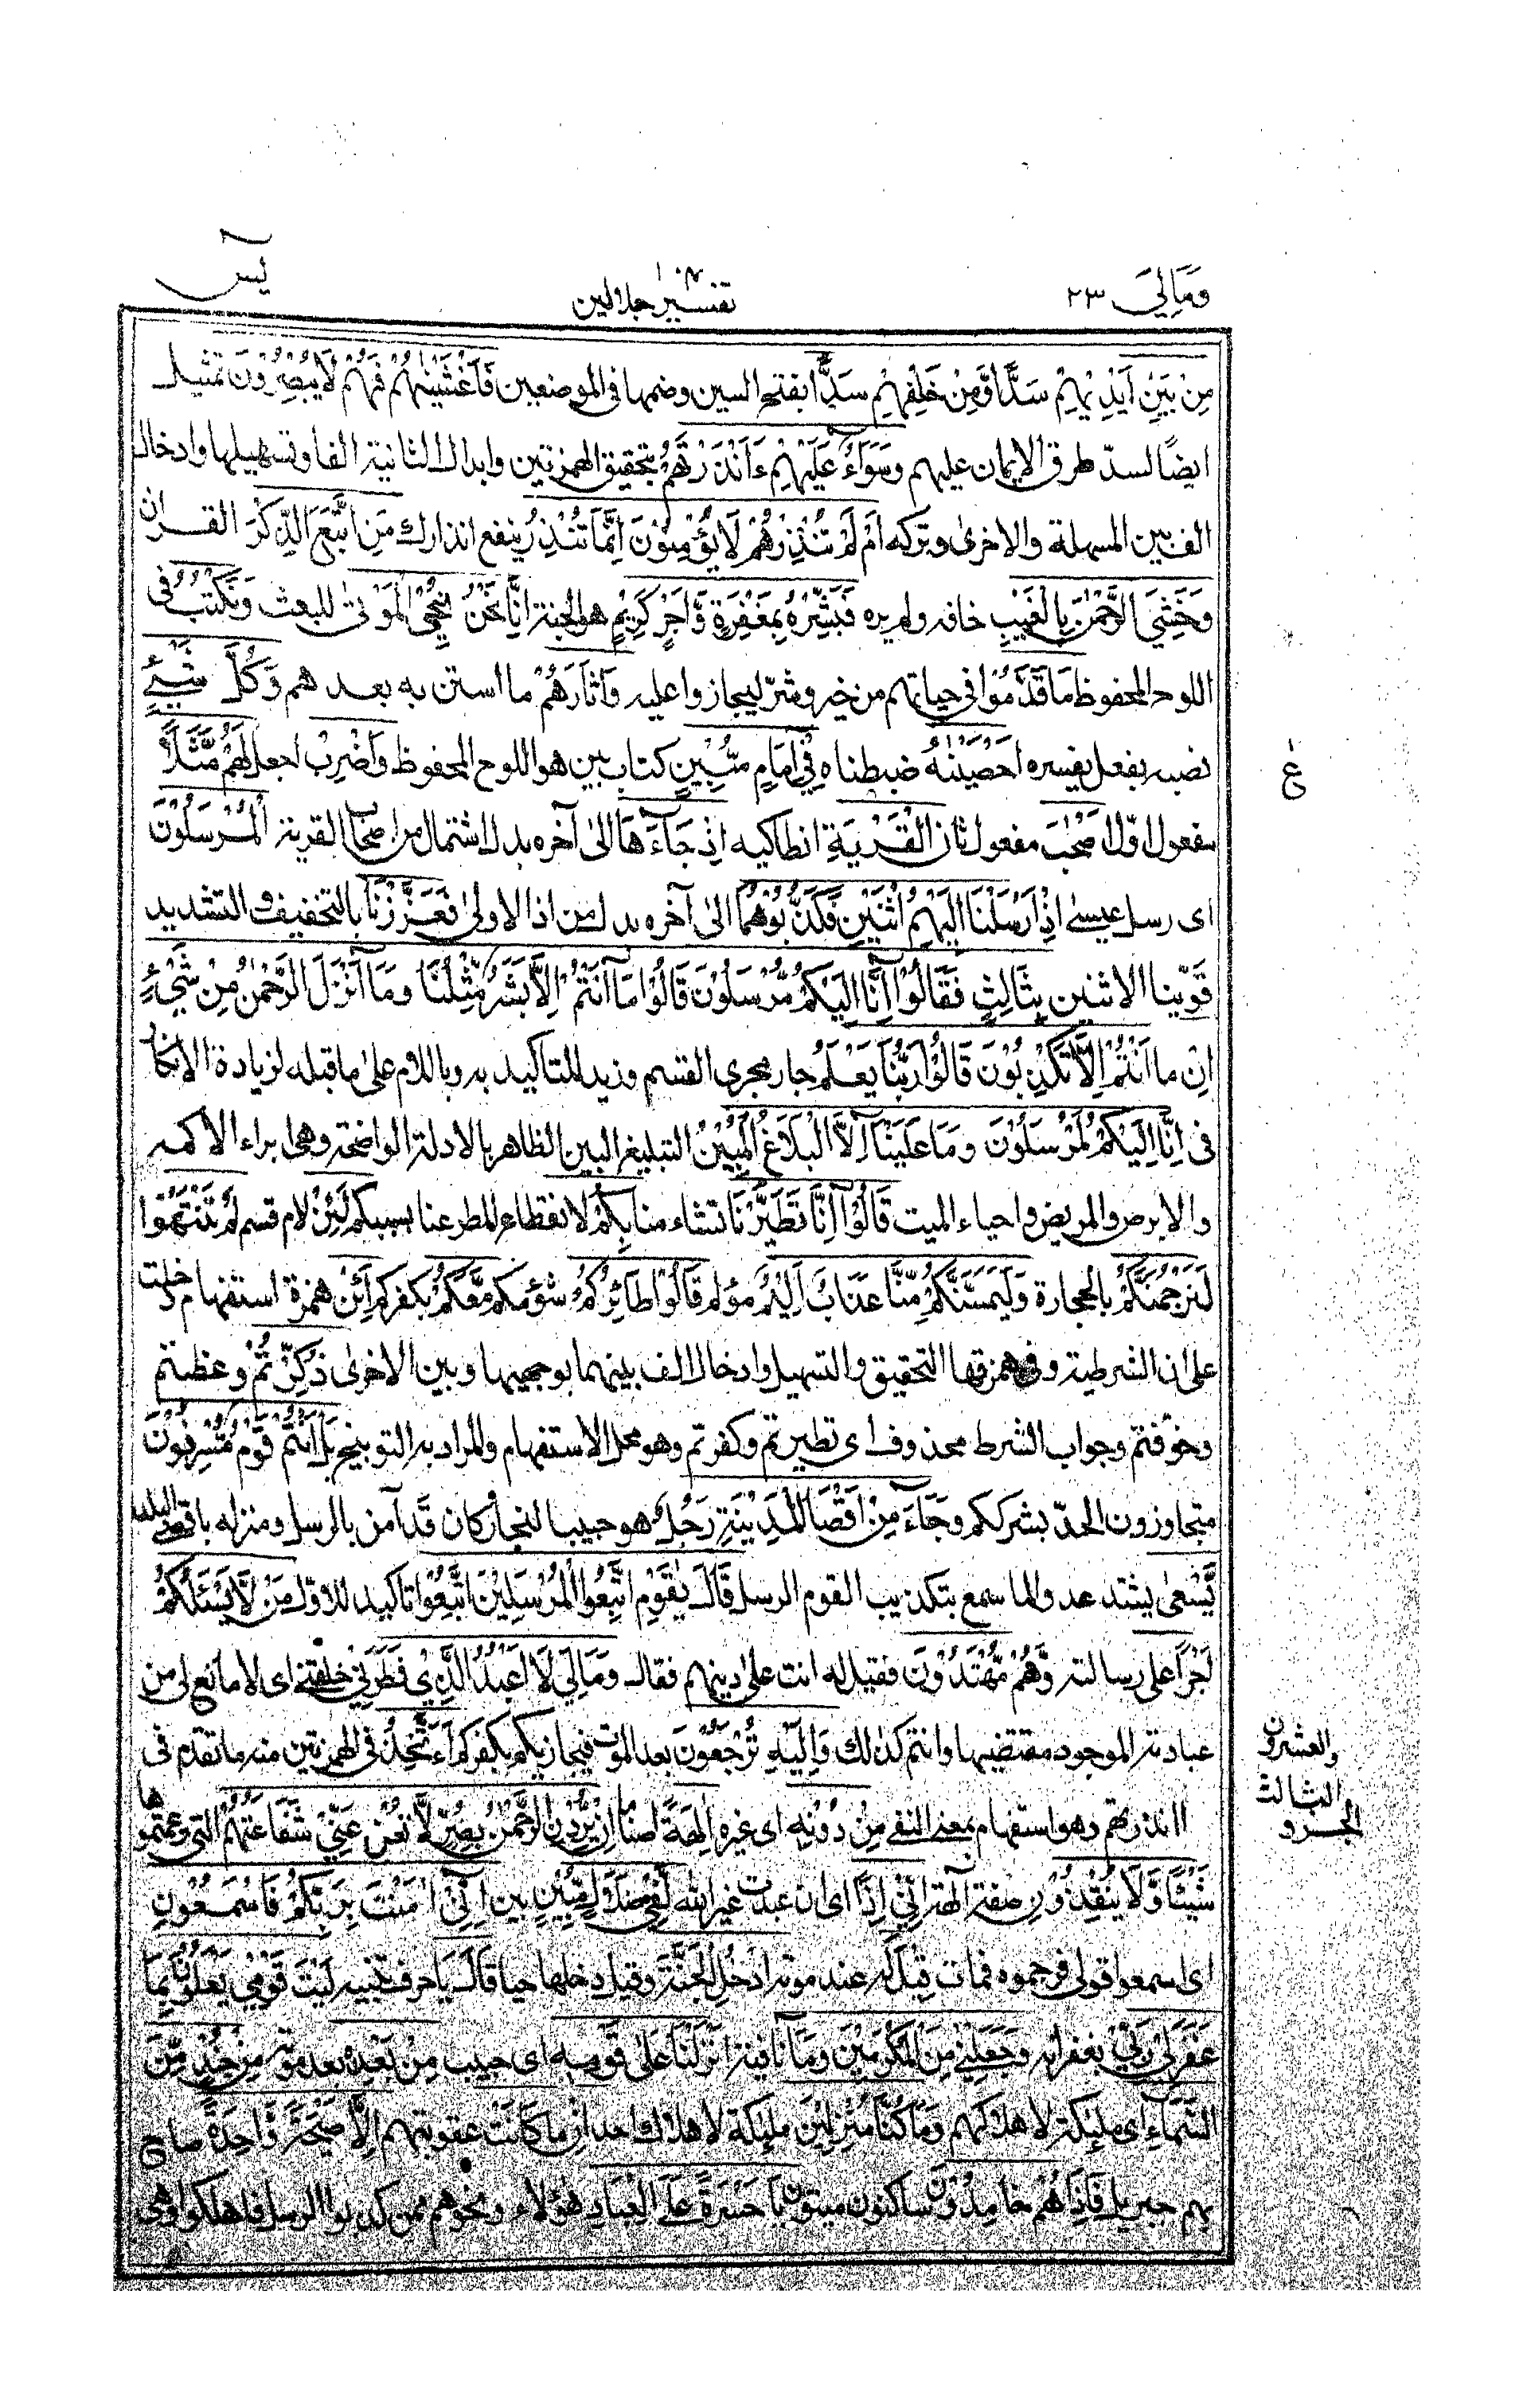 وَمَالِيَ ٢٣
تفسير جلالين
يٰسٓ
مِنْ بَيْنِ اَيْدِيْهِمْ سَدًّا وَّمِنْ خَلْفِهِمْ سَدًّا بفتح السين وضمها فى الموضعين فَاَغْشَيْنٰهُمْ فَهُمْ لَا يُبْصِرُوْنَ تمثيل
ايضًا لسدّ طرق الايمان عليهم وَسَوَآءٌ عَلَيْهِمْ ءَاَنْذَرْتَهُمْ بتحقيق الهمزتين وابدال الثانية الفا وتسهيلها وادخال
الف بين المسهلة والاخرى وتركه اَمْ لَمْ تُنْذِرْهُمْ لَا يُؤْمِنُوْنَ اِنَّمَا تُنْذِرُ ينفع انذارك مَنِ اتَّبَعَ الذِّكْرَ القران
وَخَشِيَ الرَّحْمٰنَ بِالْغَيْبِ خافه ولم يره فَبَشِّرْهُ بِمَغْفِرَةٍ وَّاَجْرٍ كَرِيْمٍ هو الجنة اِنَّا نَحْنُ نُحْيِ الْمَوْتٰى للبعث وَنَكْتُبُ فى
اللوح المحفوظ مَا قَدَّمُوْا فى حياتهم من خير وشرّ ليجازوا عليه وَاٰثَارَهُمْ ما استن به بعد هم وَكُلَّ شَيْءٍ
نصبه بفعل يفسره اَحْصَيْنٰهُ ضبطناه فِيْٓ اِمَامٍ مُّبِيْنٍ كتاب بين هو اللوح المحفوظ وَاضْرِبْ اجعل لَهُمْ مَّثَلًا
مفعول اوّل اَصْحٰبَ مفعول ثان الْقَرْيَةِ انطاكيه اِذْ جَآءَهَا الىٰ آخره بدل اشتمال من اصحاب القرية الْمُرْسَلُوْنَ
اى رسل عيسىٰ اِذْ اَرْسَلْنَا اِلَيْهِمُ اثْنَيْنِ فَكَذَّبُوْهُمَا الىٰ آخره بدل من اذ الاولىٰ فَعَزَّزْنَا بالتخفيف والتشديد
قَوّينا الاثنين بِثَالِثٍ فَقَالُوْٓا اِنَّآ اِلَيْكُمْ مُّرْسَلُوْنَ قَالُوْا مَآ اَنْتُمْ اِلَّا بَشَرٌ مِّثْلُنَا وَمَآ اَنْزَلَ الرَّحْمٰنُ مِنْ شَيْءٍ
اِنْ ما اَنْتُمْ اِلَّا تَكْذِبُوْنَ قَالُوْا رَبُّنَا يَعْلَمُ جار مجرى القسم وزيد للتاكيد به وباللام علىٰ ما قبله لزيادة الانكار
فى اِنَّآ اِلَيْكُمْ لَمُرْسَلُوْنَ وَمَا عَلَيْنَآ اِلَّا الْبَلَاغُ الْمُبِيْنُ التبليغ البين الظاهر بالادلة الواضحة وهى ابراء الاكمه
والابرص والمريض واحياء الميت قَالُوْٓا اِنَّا تَطَيَّرْنَا تشاء منا بِكُمْ لانقطاع المطر عنا بسببكم لَئِنْ لام قسم لَّمْ تَنْتَهُوْا
لَنَرْجُمَنَّكُمْ بالحجارة وَلَيَمَسَّنَّكُمْ مِّنَّا عَذَابٌ اَلِيْمٌ مؤلم قَالُوْا طَآئِرُكُمْ شؤمكم مَّعَكُمْ بكفركم اَئِنْ همزة استفهام دخلت
على ان الشرطية وفى همزتها التحقيق والتسهيل وادخال الف بينهما بوجهيها وبين الاخرىٰ ذُكِّرْتُمْ وعظتم
وخوّفتم وجواب الشرط محذوف اى تطيرتم وكفرتم وهو محل الاستفهام والمراد به التوبيخ بَلْ اَنْتُمْ قَوْمٌ مُّسْرِفُوْنَ
متجاوزون الحدّ بشرككم وَجَآءَ مِنْ اَقْصَا الْمَدِيْنَةِ رَجُلٌ هو حبيب النجار كان قد آمن بالرسل ومنزله باقصى البلد
يَّسْعٰى يشتد عدوا لما سمع بتكذيب القوم الرسل قَالَ يٰقَوْمِ اتَّبِعُوا الْمُرْسَلِيْنَ اتَّبِعُوْا تاكيد للاوّل مَنْ لَّا يَسْئَلُكُمْ
اَجْرًا على رسالته وَّهُمْ مُّهْتَدُوْنَ فقيل له انت علىٰ دينهم فقال وَمَا لِيَ لَآ اَعْبُدُ الَّذِيْ فَطَرَنِيْ خلقنى اى لا مانع لى من
عبادته الموجود مقتضيها وانتم كذٰلك وَاِلَيْهِ تُرْجَعُوْنَ بعد الموت فيجازيكم بكفركم ءَاَتَّخِذُ فى الهمزتين منه ما تقدم فى
ءانذرتهم وهو استفهام بمعنى النفى مِنْ دُوْنِهٖٓ اى غيره اٰلِهَةً اصناما اِنْ يُّرِدْنِ الرَّحْمٰنُ بِضُرٍّ لَّا تُغْنِ عَنِّيْ شَفَاعَتُهُمْ التى زعمتموها
شَيْئًا وَّلَا يُنْقِذُوْنِ صفة آلهة اِنِّيْٓ اِذًا اى ان عبدت غير الله لَّفِيْ ضَلٰلٍ مُّبِيْنٍ بين اِنِّيْٓ اٰمَنْتُ بِرَبِّكُمْ فَاسْمَعُوْنِ
اى اسمعوا قولى فرجموه فمات قِيْلَ له عند موته ادْخُلِ الْجَنَّةَ وقيل دخلها حيا قَالَ يَا حرف تنبيه لَيْتَ قَوْمِيْ يَعْلَمُوْنَ بِمَا
غَفَرَ لِيْ رَبِّيْ بغفرانه وَجَعَلَنِيْ مِنَ الْمُكْرَمِيْنَ وَمَآ نافية اَنْزَلْنَا عَلٰى قَوْمِهٖ اى حبيب مِنْ بَعْدِهٖ بعد موته مِنْ جُنْدٍ مِّنَ
السَّمَآءِ اى ملٰئكة لاهلاكهم وَمَا كُنَّا مُنْزِلِيْنَ ملٰئكة لاهلاك احد اِنْ ما كَانَتْ عقوبتهم اِلَّا صَيْحَةً وَّاحِدَةً صاح
بهم جبريل فَاِذَا هُمْ خَامِدُوْنَ ساكنون ميتون يَا حَسْرَةً عَلَى الْعِبَادِ هؤلاء ونحوهم ممن كذبوا الرسل فاهلكوا وهى
ع
الجزو
الثالث
والعشرون